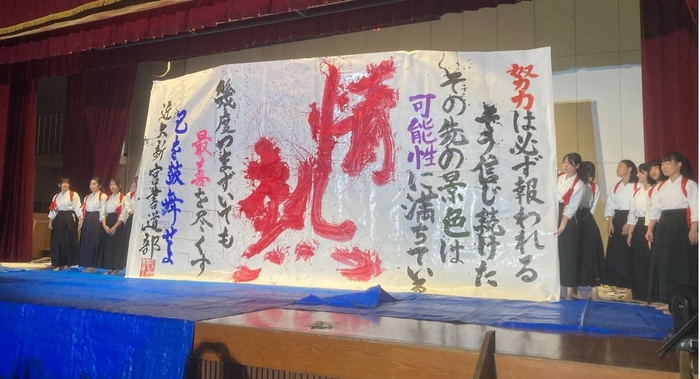 努力は必ず報われる
そう信じ続けた
その先の景色は
可能性に満ちている
情熱
幾度つまずいても
最善を尽くす
己を鼓舞せよ
近大新宮書道部